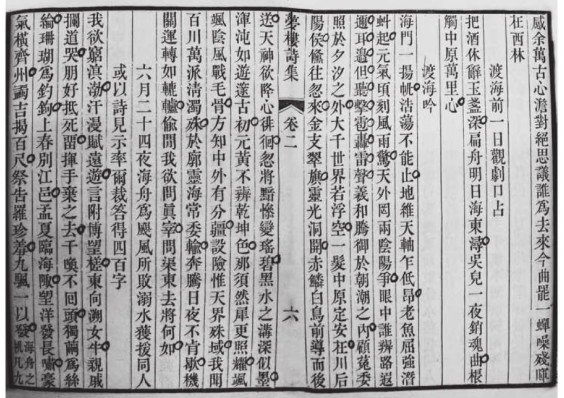 感余萬古心澹對絕思議誰爲去來今曲罷一蟬噪殘暉
在西林
渡海前一日觀劇口占
把酒休辭玉盞深扁舟明日海東潯吳兒一夜銷魂曲棖
觸中原萬里心
渡海吟
海門一揚帆浩蕩不能止地維天軸乍低昂老魚屈強潛
虯起元氣頃刻風雨驚天外罔兩陰陽爭眼中誰辨路遐
邇耳邊但聽轟雷聲羲和騰御於朝潮之內顧菟委
照於夕汐之外大千世界若浮空一髮中原定安在川后
陽侯倏往忽來金支翠旗靈光洞開赤鱗白鳥前導而後
夢樓詩集 卷二 六
送天神欲降心徘徊忽將黯慘變瑤碧黑水之溝深似墨
渾沌如遊邃古初元黃不辨乾坤色那須然犀更照耀颯
颯陰風戰毛骨方知中外有分疆設險惟天界殊域我聞
百川萬派清濁殊於廓靈海常委輸奔騰日夜不肯歇機
關運轉如轆轤偷閒我欲問眞宰問渠東去將何如
六月二十四夜海舟爲颶風所敗溺水獲援同人
或以詩見示率爾裁答得四百字
我欲窮溟渤汗漫賦遠遊言附博望槎東向溯女牛親戚
攔道哭朋好抵死留揮手棄之去千喚不回頭獨繭爲絲
綸珊瑚爲釣鉤上春別江邑孟夏臨海陬望洋發長嘯豪
氣橫齊州蠲吉揭百尺祭告羅珍羞九颿一以發海舟之帆凡九